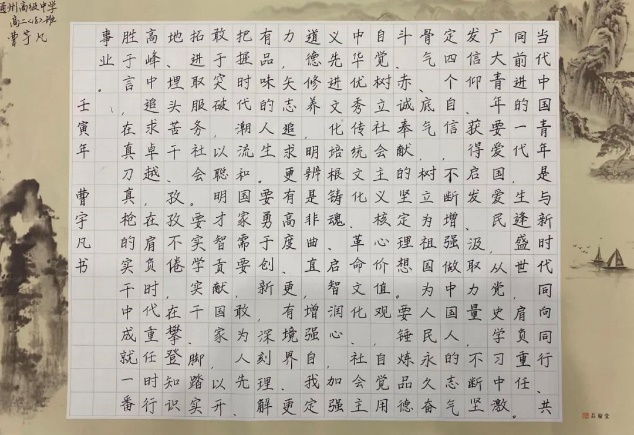 当代中国青年是与新时代同向同行、共
同前进的一代,生逢盛世,肩负重任。
广大青年要爱国爱民,从党史学习中激
发信仰、获得启发、汲取力量,不断坚
定四个自信,不断增强做中国人的志气
骨气、底气,树立为祖国为人民永久奋
斗、赤诚奉献的坚定理想。要锤炼品德
自觉树立社会主义核心价值观,自觉用
中华优秀传统文化、革命文化、社会主
义先进文化培根铸魂、启智润心,加强
道德修养,明辨是非曲直,增强自我定
力,矢志追求更有高度、更有境界、更
有品味的人生。要勇于创新,深刻理解
把握时代潮流和国家需要,敢为人先、
敢于突破,以聪明才智贡献国家,以开
拓进取服务社会。要实学实干,脚踏实
地、埋头苦干,孜孜不倦,在攀登知识
高峰中追求卓越,在肩负时代重任时行
胜于言,在真刀真枪的实干中成就一番
事业。
壬寅年 曹宇凡书
通州高级中学
曹宇凡